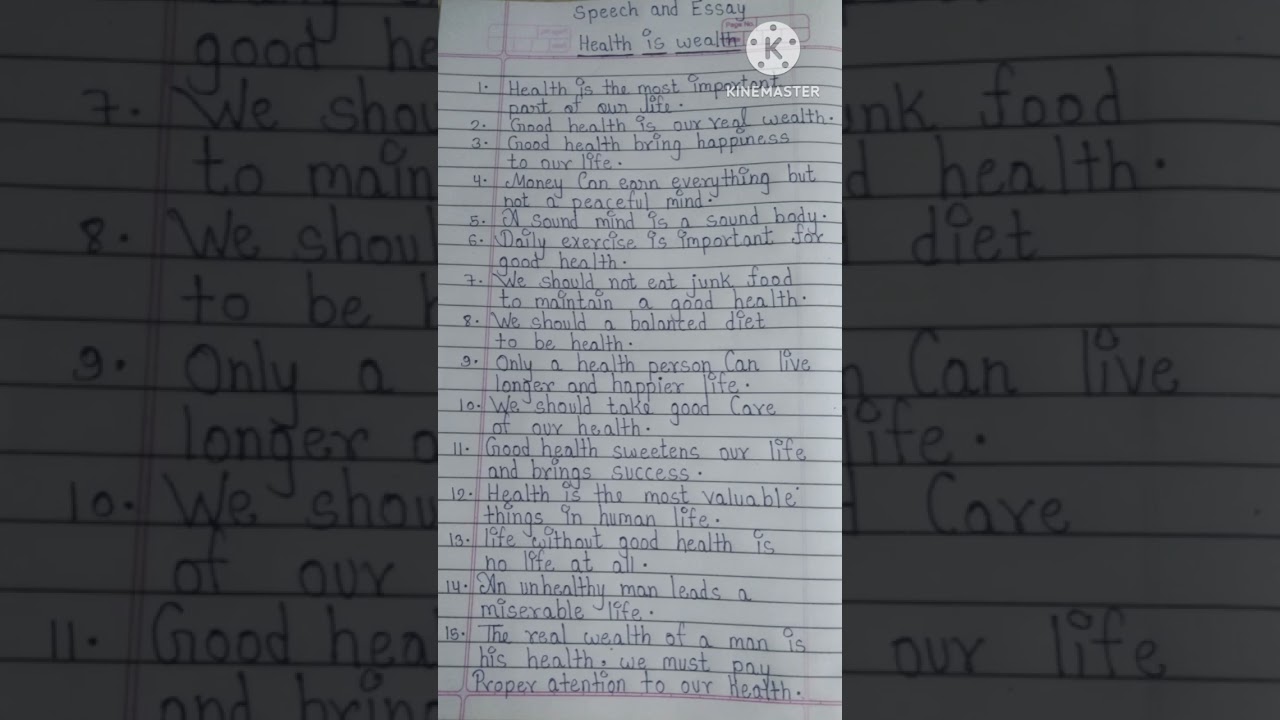 Speech and Essay
Page No.
Health is wealth
KINEMASTER
1. Health is the most important
part of our life.
2. Good health is our real wealth.
3. Good health bring happiness
to our life.
4. Money Can earn everything but
not a peaceful mind.
5. A sound mind is a sound body.
6. Daily exercise is important for
good health.
7. We should not eat junk food
to maintain a good health.
8. We should a balanted diet
to be health.
9. Only a health person Can live
longer and happier life.
10. We should take good Care
of our health.
11. Good health sweetens our life
and brings success.
12. Health is the most valuable
things in human life.
13. life without good health is
no life at all.
14. An unhealthy man leads a
miserable life.
15. The real wealth of a man is
his health, we must pay
Proper atention to our Health.